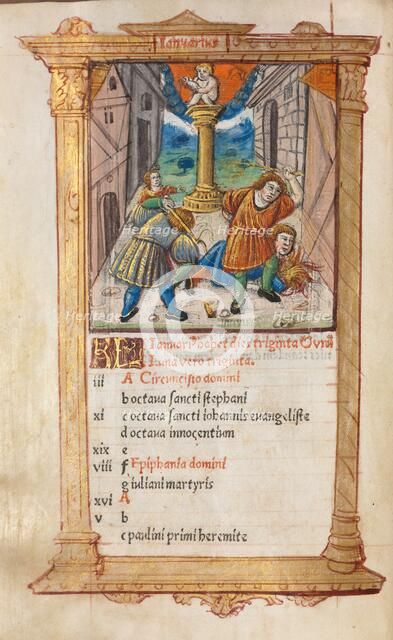 Ianuarius
KL Ianuari⁹ habet dies triginta & vnū
Luna vero triginta.
iii A Circuncisio domini
b octaua sancti stephani
xi c octaua sancti iohannis euangeliste
d octaua innocentium
xix e
viii f Epiphania domini
g iuliani martyris
xvi A
v b
c paulini primi heremite
Heritage
Heritage
Heritage
Heritage
Heritage
Heritage